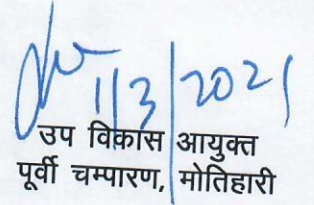 1/3/2021
उप विकास आयुक्त
पूर्वी चम्पारण, मोतिहारी